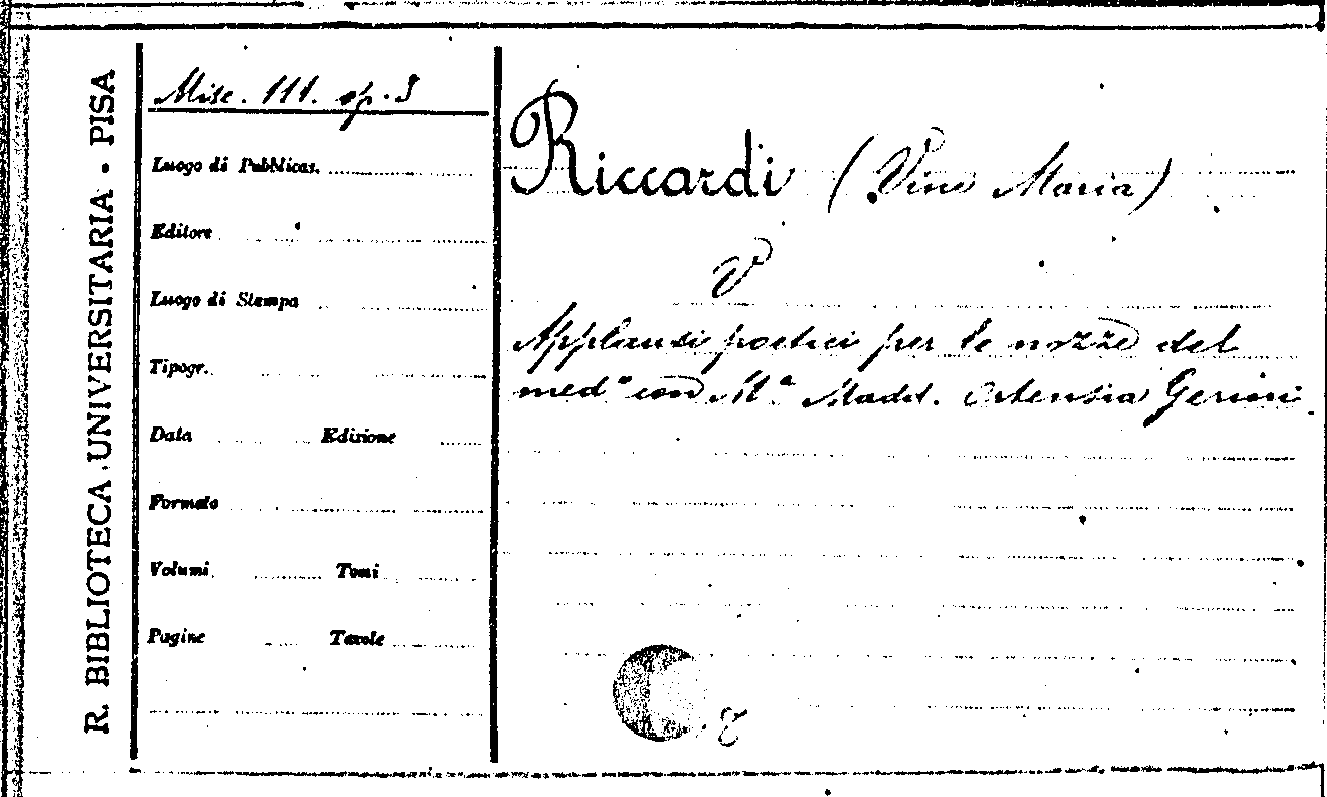 R. BIBLIOTECA UNIVERSITARIA - PISA
Misc. 111. op. 3
Luogo di Pubblicaz.
Editore
Luogo di Stampa
Tipogr.
Data Edizione
Formato
Volumi Tomi
Pagine Tavole
Riccardi (Vinc Maria)
V
Applausi poetici per le nozze del
med° con Mª Madd. Ortensia Gerini.